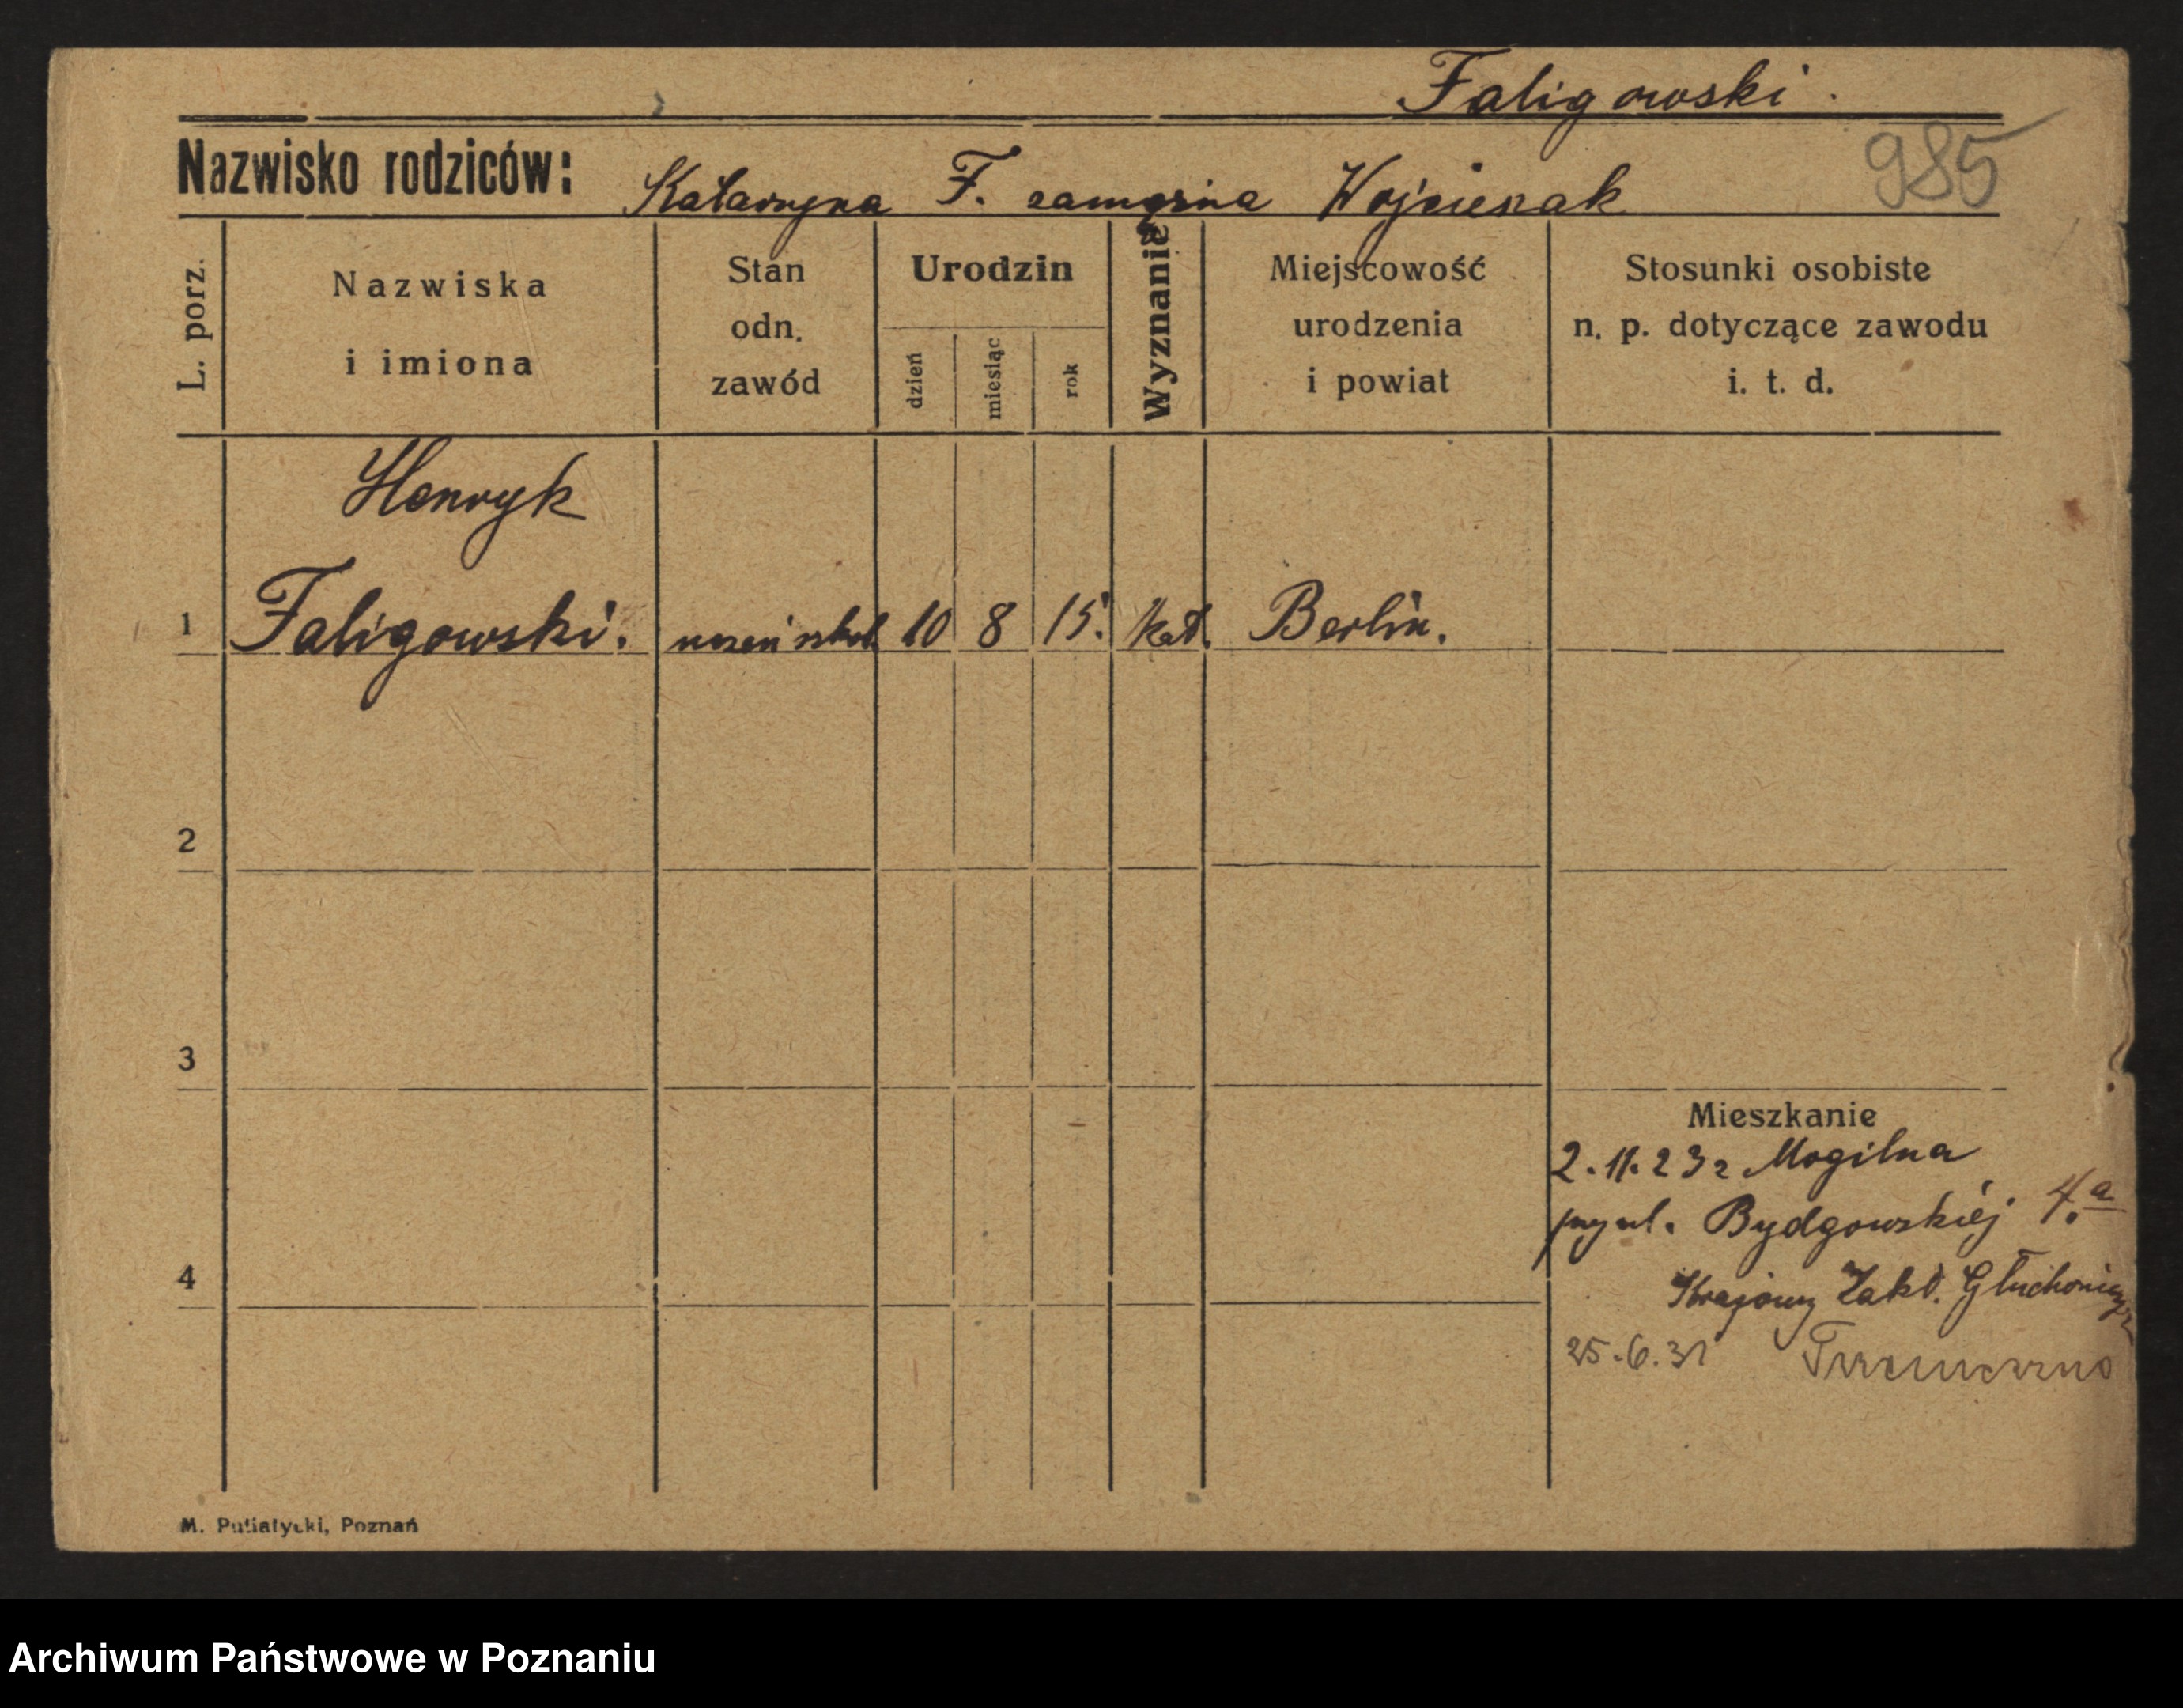 Faligowski.
985
Nazwisko rodziców: Katarzyna F. zamężna Wojciezak
L. porz.
Nazwiska i imiona
Stan odn. zawód
Urodzin
dzień
miesiąc
rok
Wyznanie
Miejscowość urodzenia i powiat
Stosunki osobiste n. p. dotyczące zawodu i. t. d.
Henryk
1 Faligowski. uczeń szkol. 10 8 15. kat. Berlin.
2
3
Mieszkanie
2.11.23 z Mogilna
przy ul. Bydgowskiéj 4.a
4
Krajowy Zakł.
25.6.31
M. Putiatycki, Poznań
Archiwum Państwowe w Poznaniu